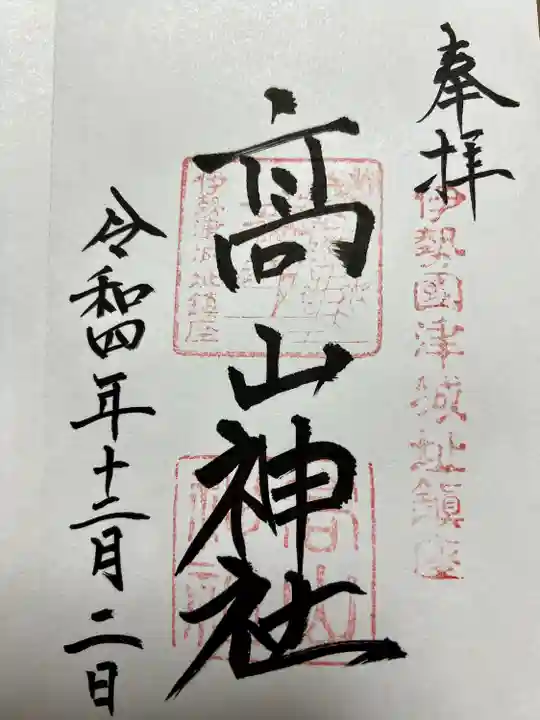 奉拝
伊勢國津城址鎮座
髙山神社
伊勢津城址鎮座
高山神社
令和四年十二月二日